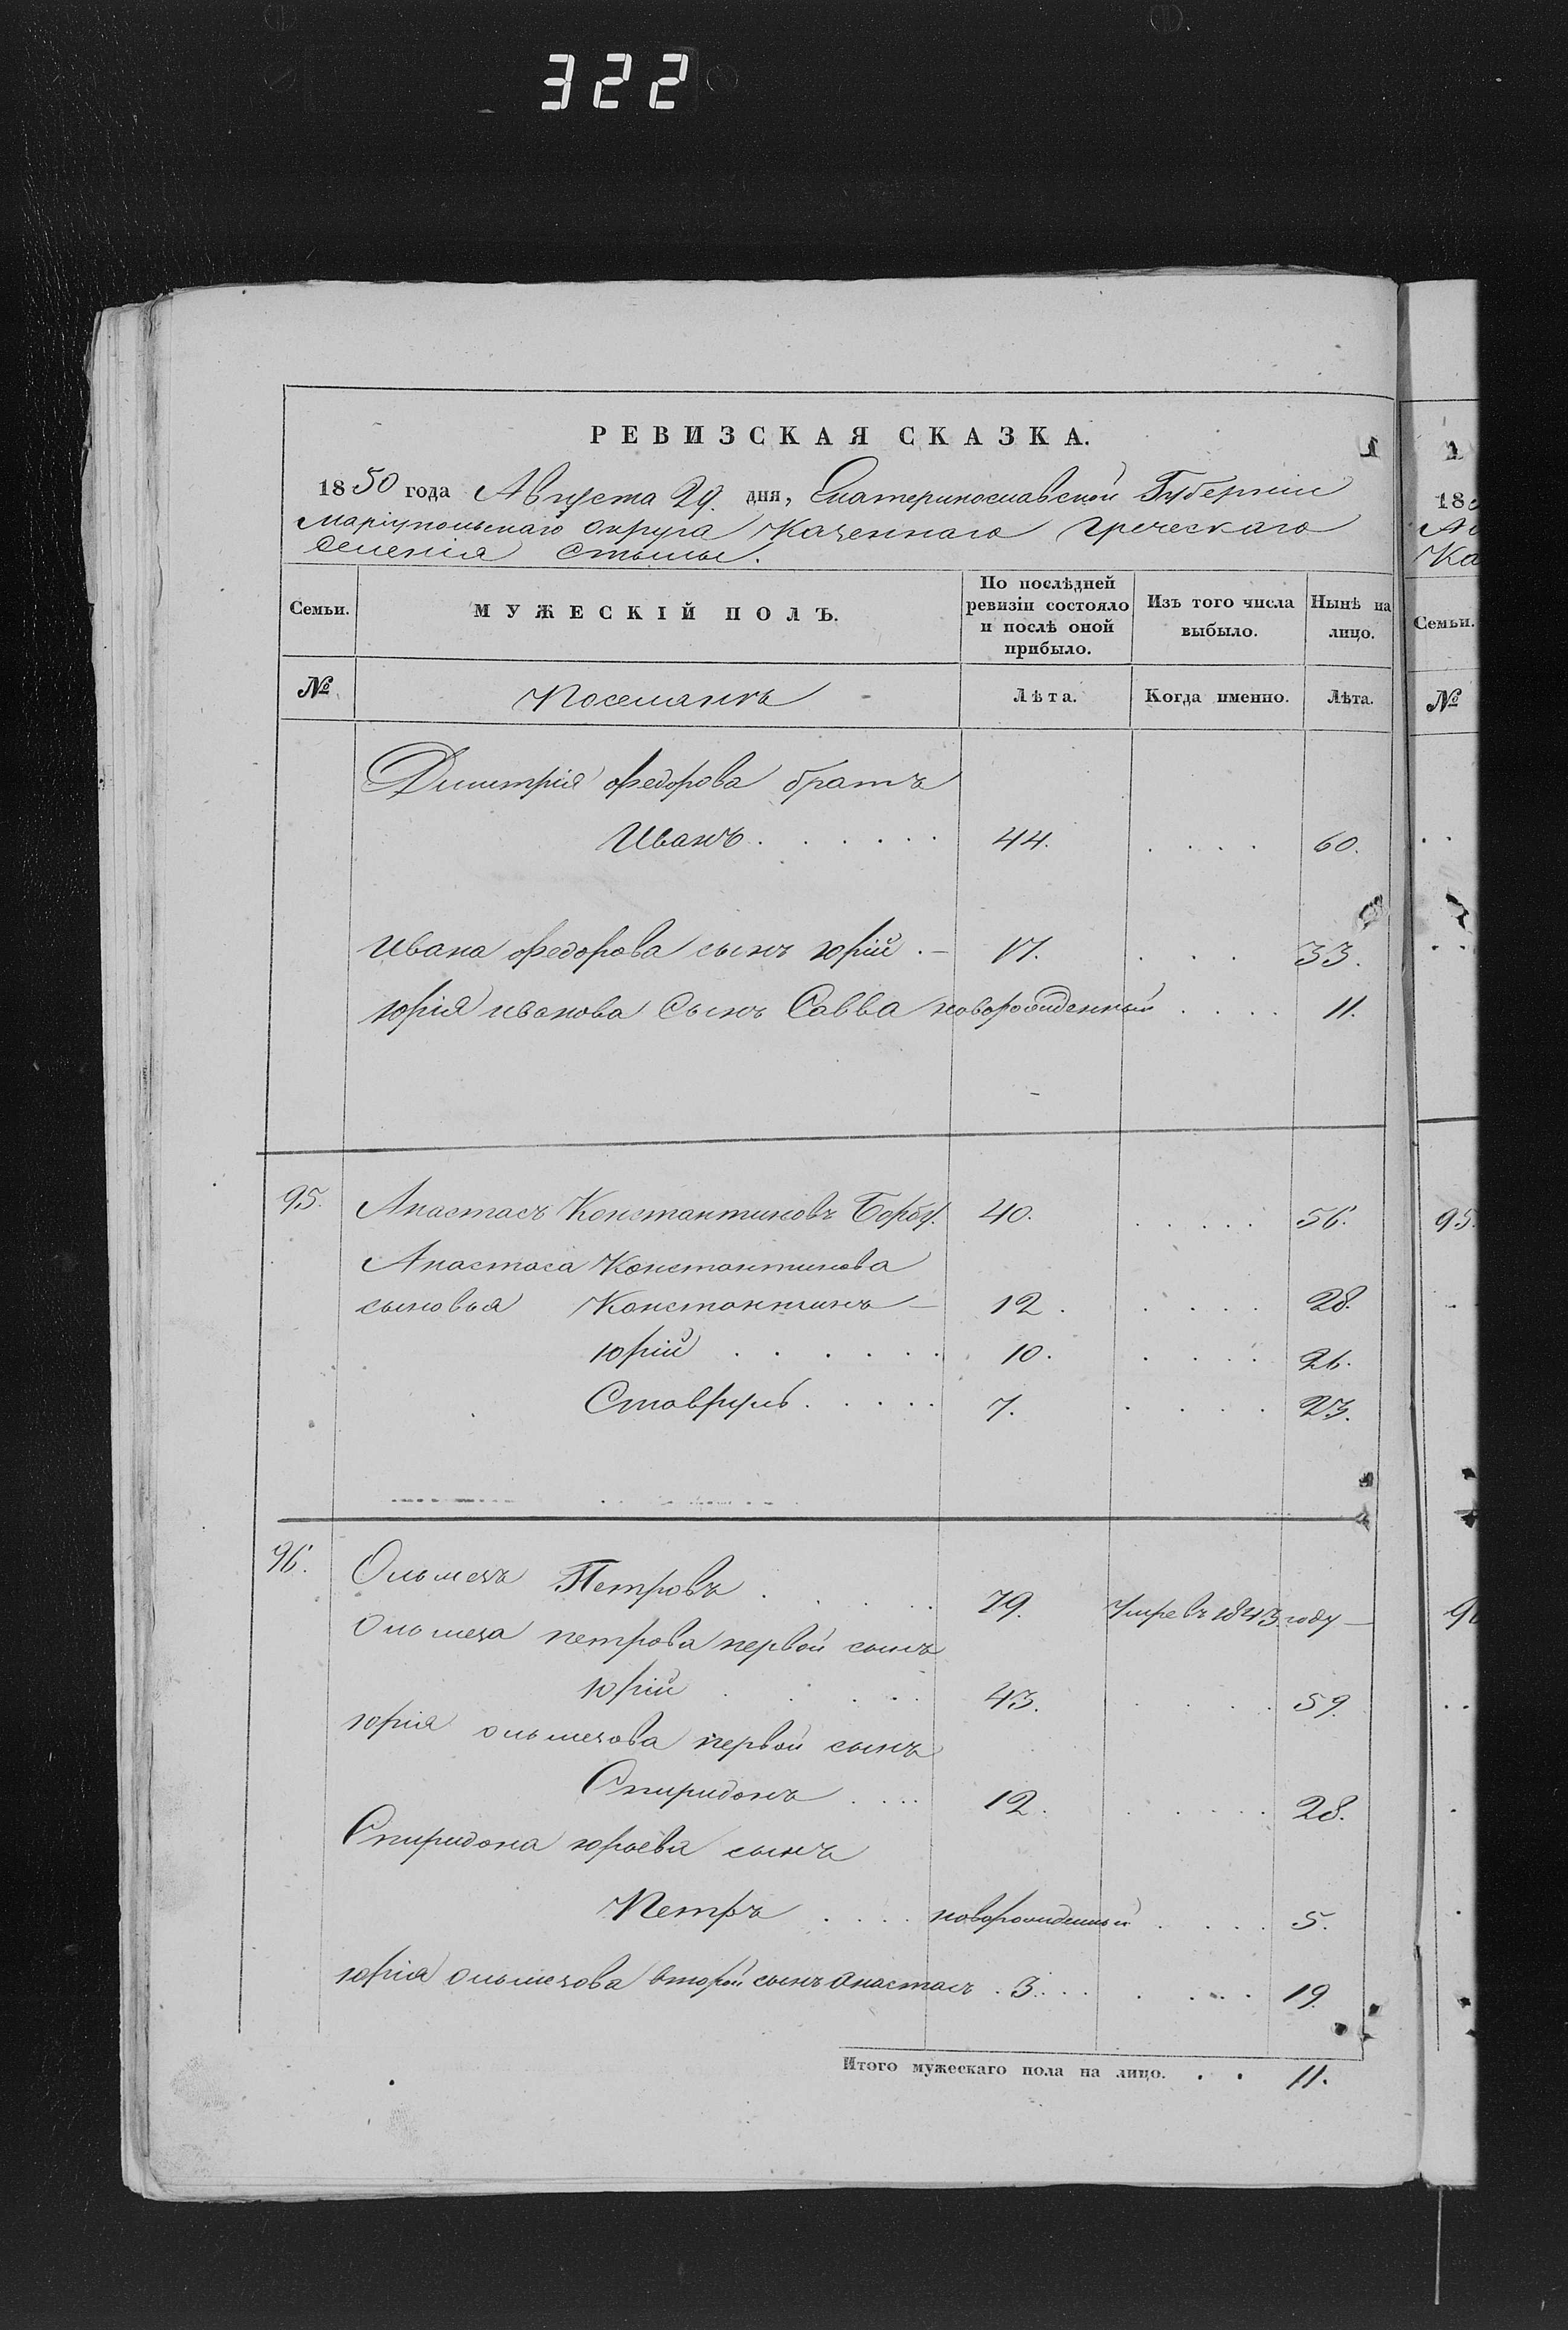 322
РЕВИЗСКАЯ СКАЗКА.
1850 года Августа 29. дня, Екатеринославской Губерніи
Маріупольскаго округа Казеннаго Греческаго
селенія Стылы.
Семьи. МУЖЕСКІЙ ПОЛЪ. По послѣдней ревизіи состояло и послѣ оной прибыло. Изъ того числа выбыло. Нынѣ на лицо.
№ Поселянъ Лѣта. Когда именно. Лѣта.
Димитрія Федорова братъ
Иванъ . . . . . . 44. . . . . 60.
Ивана Федорова сынъ Юрій . — 17. . . . 33.
Юрія Иванова Сынъ Савва новорожденный . . . . 11.
95. Анастасъ Константиновъ 40. . . . . . 56.
Анастаса Константинова
сыновья Константинъ — 12. . . . . . 28.
Юрій . . . . . . 10. . . . . 26.
Ставруль . . . . . 7. . . . . 23.
96. Ольмезъ Петровъ . . . . . 79. Умре въ 1843 году —
Ольмеза Петрова первой сынъ
Юрій . . . . . 43. . . . . 59.
Юрія Ольмезова первой сынъ
Спиридонъ . . . . 12. . . . . . 28.
Спиридона Юрьева сынъ
Петръ . . . . новорожденный . . . . 5.
Юрія Ольмезова второй сынъ Анастасъ . 3. . . . . . . . 19.
Итого мужескаго пола на лицо. . . 11.
18
Ка
Семьи.
№
95.